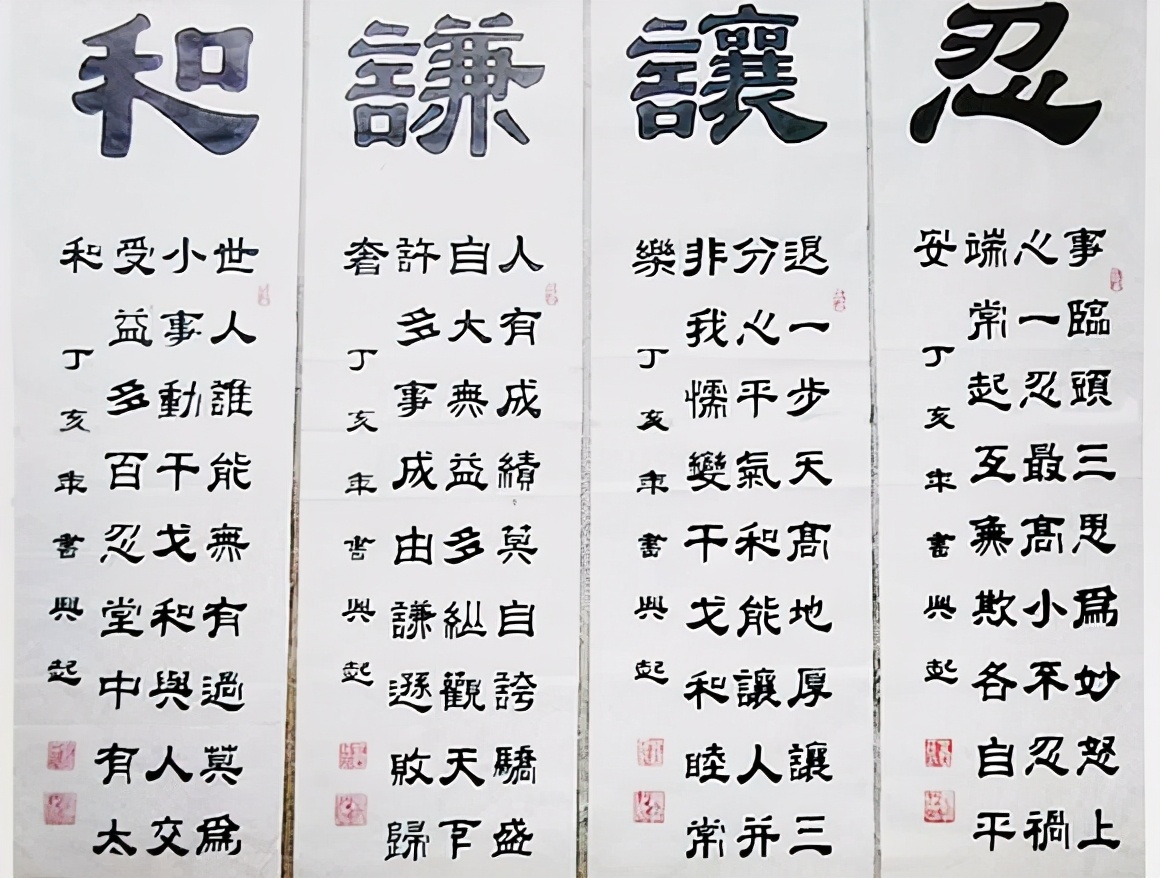 忍
事臨頭三思爲妙怒上
心一忍最髙小不忍禍
端常起互無欺各自平
安
丁亥年書興起
讓
退一步天髙地厚讓三
分心平氣和能讓人并
非我懦變干戈和睦常
樂
丁亥年書興起
謙
人有成績莫自誇驕盛
自大無益多縱觀天下
許多事成由謙遜敗歸
奢
丁亥年書興起
和
世人誰能無有過莫爲
小事動干戈和與人交
受益多百忍堂中有太
和
丁亥年書興起